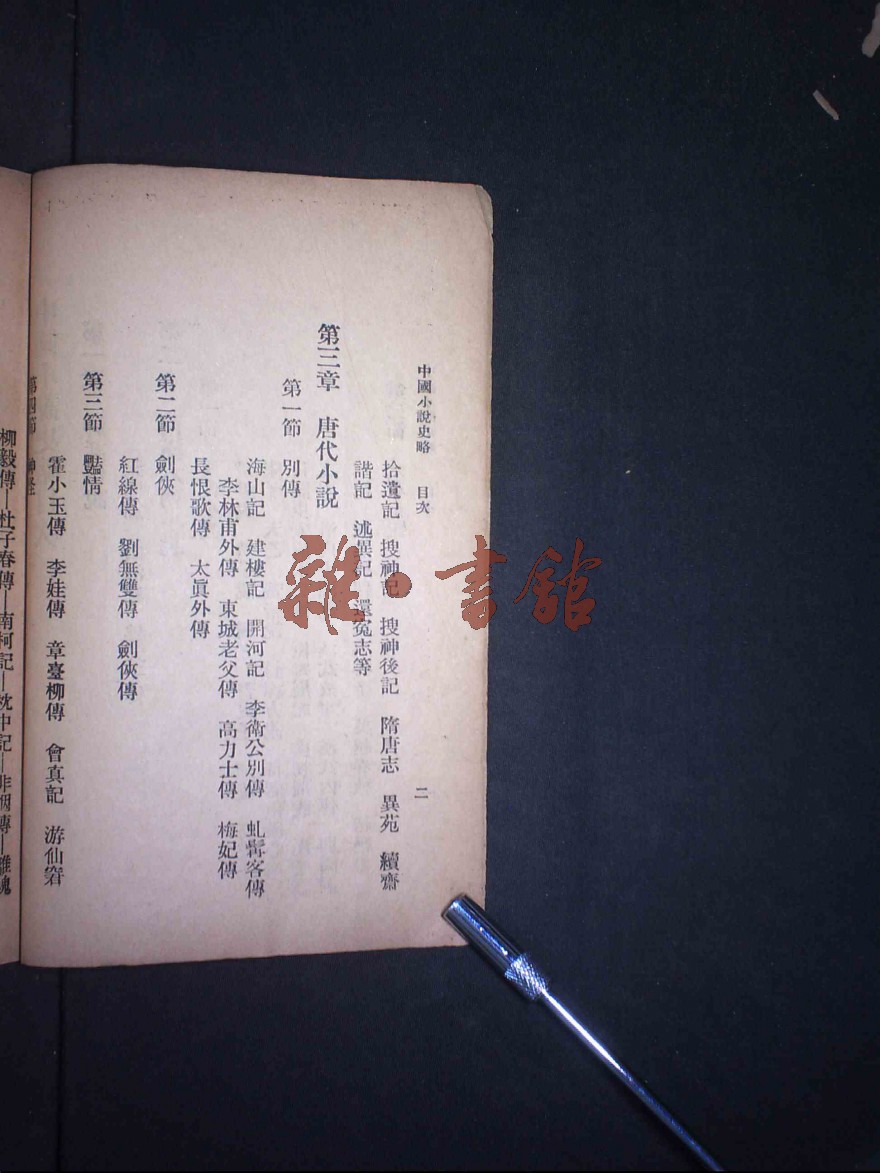 中國小說史略 目次 二
拾遺記 搜神記 搜神後記 隋唐志 異苑 續齋
諧記 述異記 還冤志等
第三章 唐代小說
第一節 別傳
海山記 建樓記 開河記 李衛公別傳 虬髯客傳
李林甫外傳 東城老父傳 高力士傳 梅妃傳
長恨歌傳 太眞外傳
第二節 劍俠
紅線傳 劉無雙傳 劍俠傳
第三節 豔情
霍小玉傳 李娃傳 章臺柳傳 會真記 游仙窟
第四節 神怪
柳毅傳—杜子春傳—南柯記—枕中記—非烟傳—離魂
雜·書館